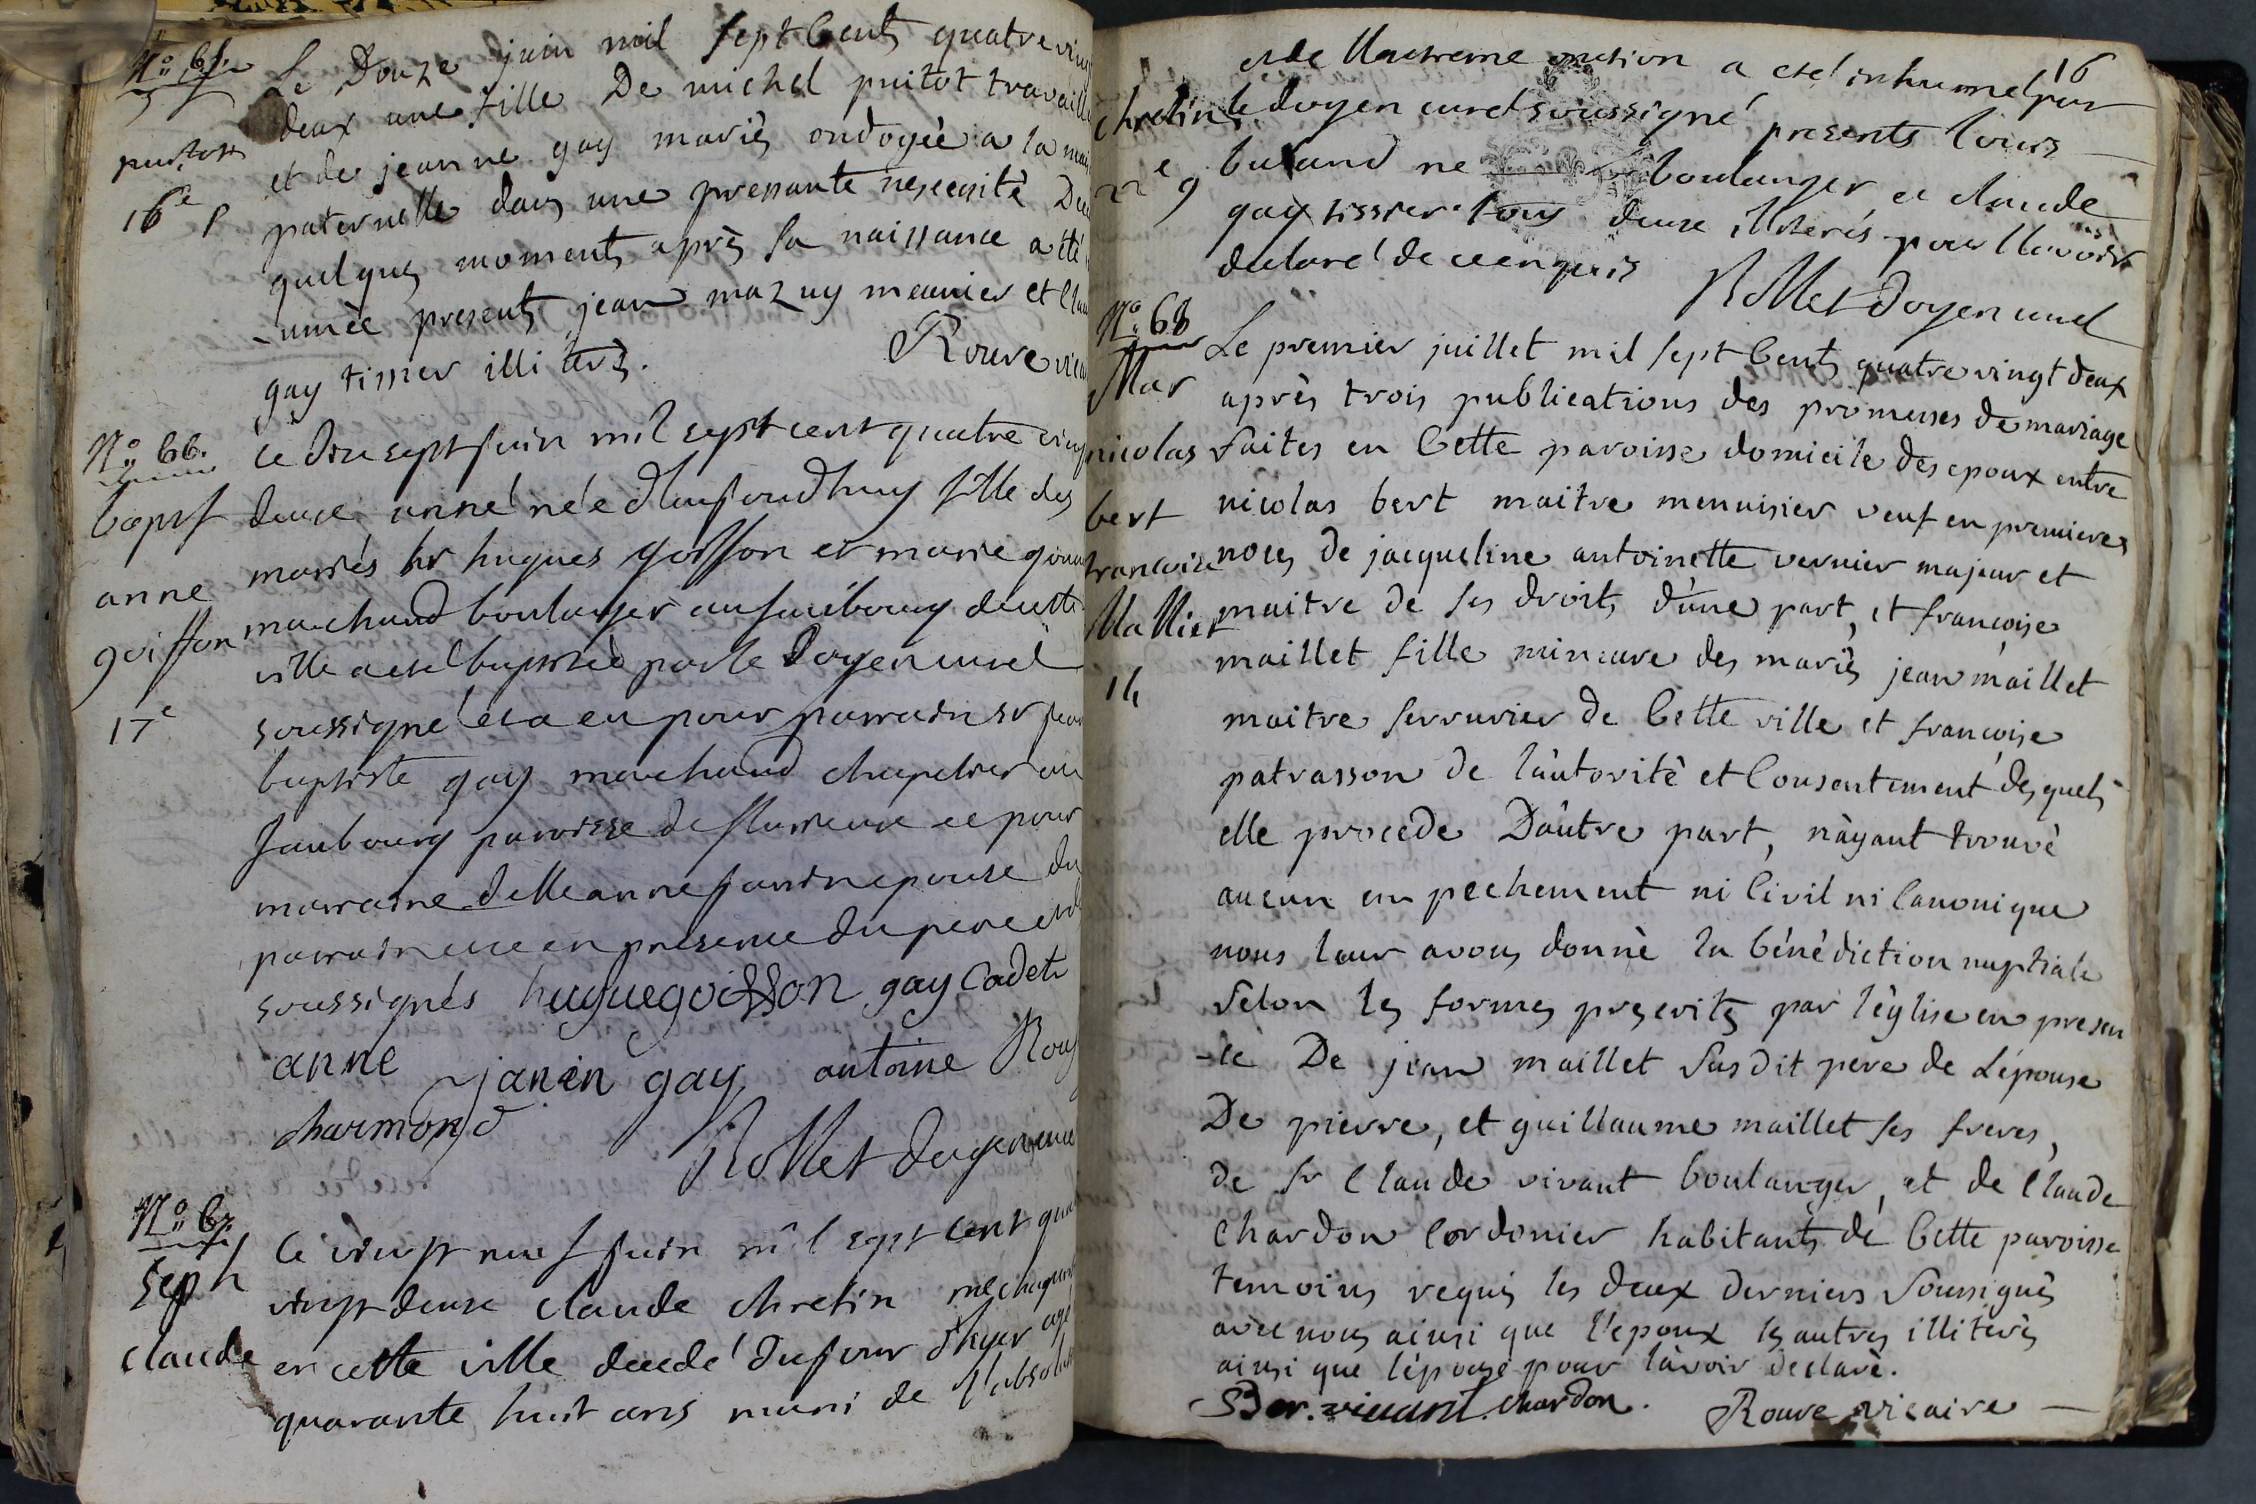 N.o 65.
puitot
16e
Le Douze juin mil sept Cents quatre vin
deux une fille De michel puitot travaill
et de jeanne gay mariés ondoyée a la mai
paternelle dans une pressante nescessité De
quelques moments après sa naissance a été
-umée presents jean mazuy meunier et Clau
gay tissier illiterés.
Rouve vica
N.o 66.
bapt
anne
goiffon
17e
ce dix sept juin mil sept cent quatre ving
deuxe anné née d'aujourdhuy fille des
mariés sr hugues goiffon et marie
marchand boulanger au fauxbourg de cette
ville a eté baptisée par le Doyen curé
soussigné et a eu pour parrain sr jean
baptiste gay marchand chapelier au
faubourg paroisse de flurieux et pour
marraine delle anne janin epouse du
parrain en presence du pere et de
soussignés huguegoiffon gay Cadet
anne janin gay antoine Rouf
charmond
Rollet doyen curé
N.o 67.
sep
claude
ce vingt neuf juin mil sept cent qua
vingt deuxe claude chretin
en cette ville decedé du jour d'hyer agé
quarante huit ans muni de l'absolu
16
chretin
22e
et de l'extreme onction a eté inhumé par
le doyen curé soussigné, presents louis
buland ne boulanger et claude
gay tissier tous deuxe illiterés pour l'avoir
declaré de ce enquis
Rollet doyen curé
N.o 68
Mar
nicolas
bert
francoise
Malliet
14
Le premier juillet mil sept Cents quatre vingt deux
après trois publications des promesses de mariage
faites en Cette paroisse domicile des epoux entre
nicolas bert maitre menuisier veuf en premieres
noces de jacqueline antoinette vernier majeur et
maitre de ses droits d'une part, et francoise
maillet fille mineure des mariés jean maillet
maitre serrurier de Cette ville et francoise
patrasson de l'autorité et Consentement desquels
elle procede D'autre part, n'ayant trouvé
aucun empechement ni Civil ni Canonique
nous leur avons donné la bénédiction nuptiale
selon les formes prescrites par l'église en presen
-ce De jean maillet susdit pere de L'épouse
De pierre, et guillaume maillet ses freres,
de sr Claude vivant boulanger, et de Claude
Chardon Cordonier habitants de Cette paroisse
temoins requis les deux derniers soussignés
avec nous ainsi que l'epoux les autres illiterés
ainsi que l'épouse pour l'avoir declaré.
Ber. vivant. chardon. Rouve vicaire